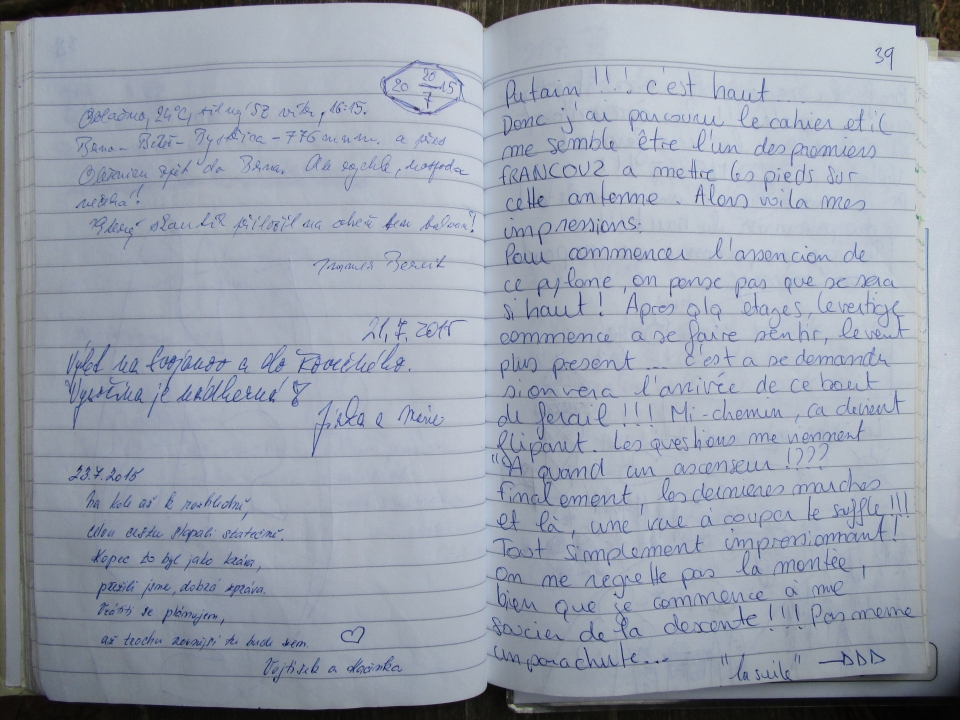 20 20/7 15
Oblačno, 24°C, silný SZ vítr, 16:15.
Brno - Bíteš - Bystřice - 776 m n.m. a přes
zpět do Brna. Ale rychle, hospoda
nečeká!
přiložil na oheň ten balvan!
21.7.2015
Výlet na a do Kovářského.
Vysočina je nádherná
Jirka a
23.7.2015
Na kole až k rozhledně,
celou cestu šlapali statečně.
Kopec to byl jako kráva,
přežili jsme, dobrá zpráva.
Vrátit se plánujem,
až trochu
Vojtíšek a
39
Putain !!! c'est haut...
Donc j'ai parcouru le cahier et il
me semble être l'un des premiers
FRANCOUZ a mettre les pieds sur
cette antenne. Alors voila mes
impressions:
Pour commencer l'assencion de
ce pylone, on pense pas que se sera
si haut ! Après qlq étages, le vertige
commence a se faire sentir, le vent
plus present ... c'est a se demander
si on vera l'arrivée de ce bout
de ferail !!! Mi-chemin, ça devient
flipant. Les questions me viennent
"A quand un ascenseur !???
finalement, les dernieres marches
et là, une vue à couper le souffle !!!
Tout simplement impressionnant !
On ne regrette pas la montée,
bien que je commence à me
soucier de la descente !!! Pas meme
un parachute...
"la suite" —▷▷▷